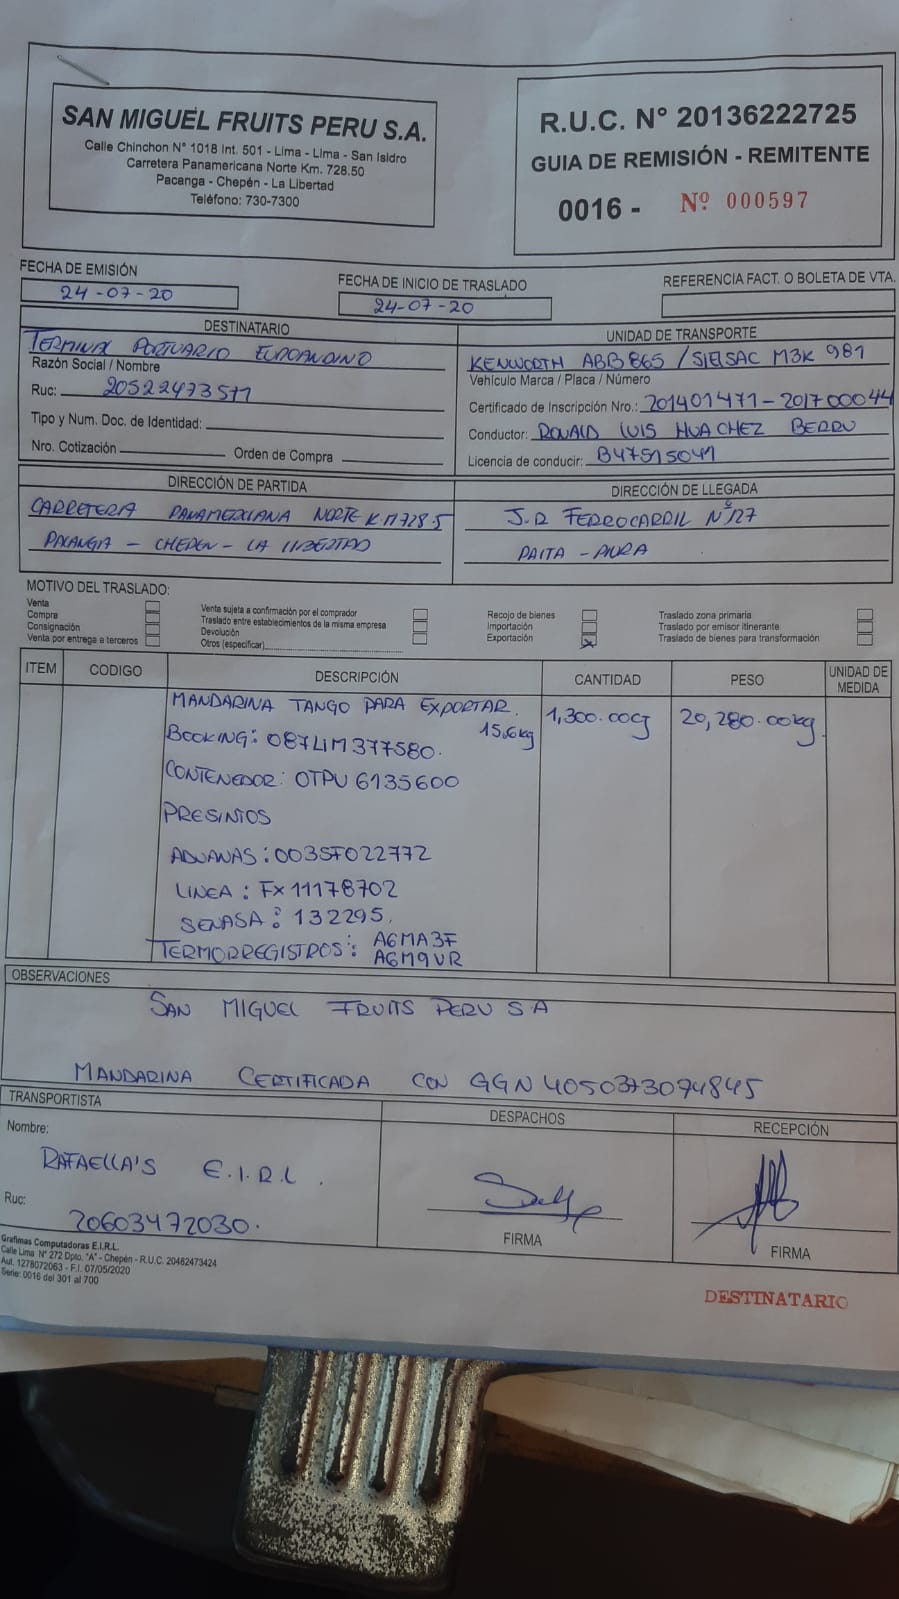 SAN MIGUEL FRUITS PERU S.A.
Calle Chinchon N° 1018 Int. 501 - Lima - Lima - San Isidro
Carretera Panamericana Norte Km. 728.50
Pacanga - Chepén - La Libertad
Teléfono: 730-7300
R.U.C. N° 20136222725
GUIA DE REMISIÓN - REMITENTE
0016 - Nº 000597
FECHA DE EMISIÓN
24-07-20
FECHA DE INICIO DE TRASLADO
24-07-20
REFERENCIA FACT. O BOLETA DE VTA.
DESTINATARIO
TERMINAL PORTUARIO EUROANDINO
Razón Social / Nombre
Ruc: 20522473571
Tipo y Num. Doc. de Identidad:
Nro. Cotización Orden de Compra
UNIDAD DE TRANSPORTE
KENWORTH ABB865 / M3K 981
Vehículo Marca / Placa / Número
Certificado de Inscripción Nro.: 201401471-201700044
Conductor: RONALD LUIS HUACHEZ BERRU
Licencia de conducir: B47515041
DIRECCIÓN DE PARTIDA
CARRETERA PANAMERICANA NORTE KM 728.5
PACANGA - CHEPEN - LA LIBERTAD
DIRECCIÓN DE LLEGADA
J.R FERROCARRIL Nº127
PAITA - PIURA
MOTIVO DEL TRASLADO:
Venta
Compra
Consignación
Venta por entrega a terceros
Venta sujeta a confirmación por el comprador
Traslado entre establecimientos de la misma empresa
Devolución
Otros (especificar)
Recojo de bienes
Importación
Exportación X
Traslado zona primaria
Traslado por emisor itinerante
Traslado de bienes para transformación
ITEM CODIGO DESCRIPCIÓN CANTIDAD PESO UNIDAD DE MEDIDA
MANDARINA TANGO PARA EXPORTAR. 1,300.00cj 20,280.00kg
15.6kg
BOOKING: 087LIM377580.
CONTENEDOR: OTPU 6135600
PRESINTOS
ADUANAS: 003SF022772
LINEA: FX11178702
SENASA: 132295.
TERMORREGISTROS: A6MA3F
A6M9VR
OBSERVACIONES
SAN MIGUEL FRUITS PERU S A
MANDARINA CERTIFICADA CON GGN 4050373074845
TRANSPORTISTA
Nombre:
RAFAELLA'S E.I.R.L.
Ruc:
20603472030.
DESPACHOS
FIRMA
RECEPCIÓN
FIRMA
Grafimas Computadoras E.I.R.L.
Calle Lima N° 272 Dpto. "A" - Chepén - R.U.C. 20482473424
Aut. 1278072063 - F.I. 07/05/2020
Serie: 0016 del 301 al 700
DESTINATARIO